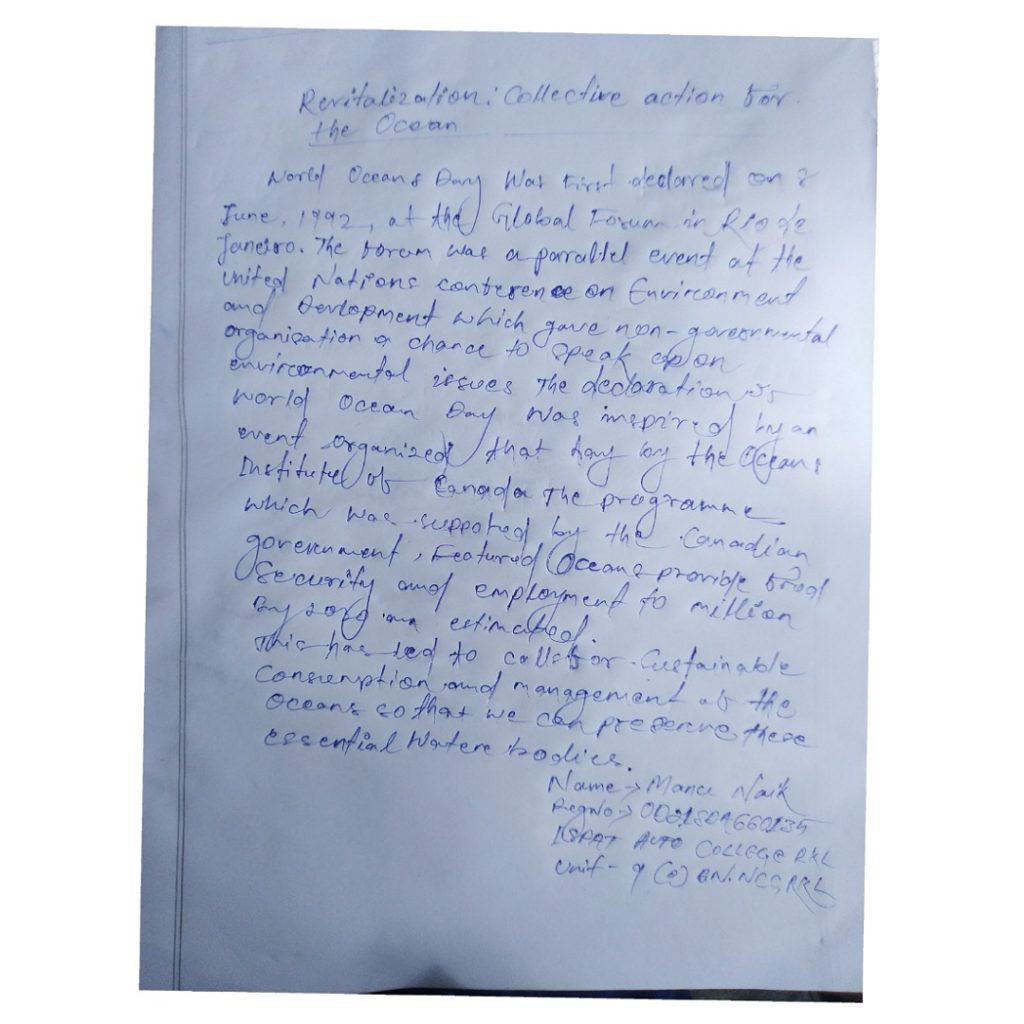 Revitalization: Collective action for
the Ocean
World Oceans Day was first declared on 8
June, 1992, at the Global Forum in Rio de
Janeiro. The forum was a parallel event at the
United Nations conference on Environment
and Development which gave non-governmental
organization a chance to speak upon
environmental issues The declaration of
world Ocean Day was inspired by an
event organized that day by the Oceans
Institute of Canada The programme
which was suppoted by the Canadian
government, Featured Oceans provide food
Security and employment to million
By an estimated.
This has led to calls for Sustainable
Consumption and management of the
Oceans so that we can preserve these
essential Watere bodies.
Name → Naik
RegNo →
ISPAT AUTO COLLEGE RKL
Unit - 9 (O) BN.NCC, RKL